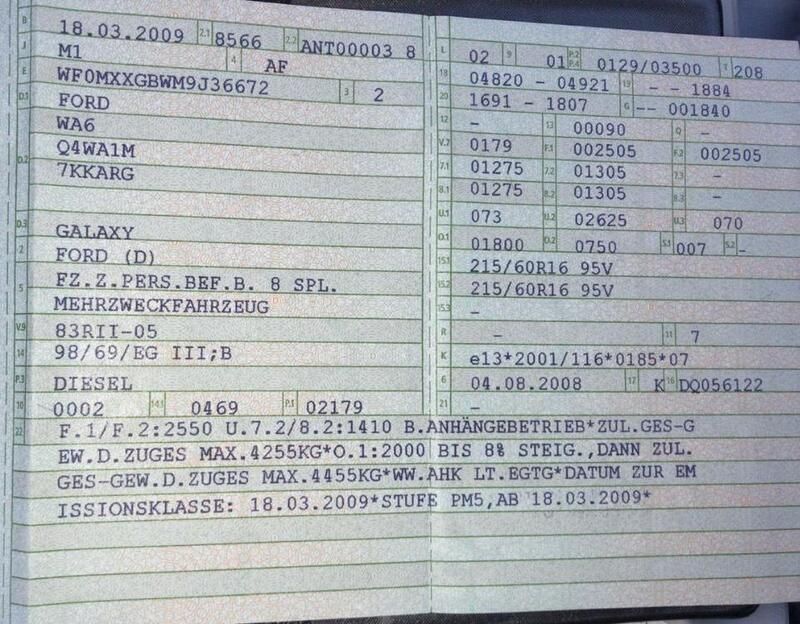 B 18.03.2009 2.1 8566 2.2 ANT00003 8
J M1 4 AF
E WF0MXXGBWM9J36672 3 2
D.1 FORD
WA6
D.2 Q4WA1M
7KKARG
D.3 GALAXY
2 FORD (D)
5 FZ.Z.PERS.BEF.B. 8 SPL.
MEHRZWECKFAHRZEUG
V.9 83RII-05
14 98/69/EG III;B
P.3 DIESEL
10 0002 14.1 0469 P.1 02179
L 02 9 01 P.2 P.4 0129/03500 T 208
18 04820 - 04921 19 - - 1884
20 1691 - 1807 G -- 001840
12 - 13 00090 Q -
V.7 0179 F.1 002505 F.2 002505
7.1 01275 7.2 01305 7.3 -
8.1 01275 8.2 01305 8.3 -
U.1 073 U.2 02625 U.3 070
O.1 01800 O.2 0750 S.1 007 S.2 -
15.1 215/60R16 95V
15.2 215/60R16 95V
15.3 -
R - 11 7
K e13*2001/116*0185*07
6 04.08.2008 17 K 16 DQ056122
21 -
22 F.1/F.2:2550 U.7.2/8.2:1410 B.ANHÄNGEBETRIEB*ZUL.GES-G
EW.D.ZUGES MAX.4255KG*O.1:2000 BIS 8% STEIG.,DANN ZUL.
GES-GEW.D.ZUGES MAX.4455KG*WW.AHK LT.EGTG*DATUM ZUR EM
ISSIONSKLASSE: 18.03.2009*STUFE PM5,AB 18.03.2009*